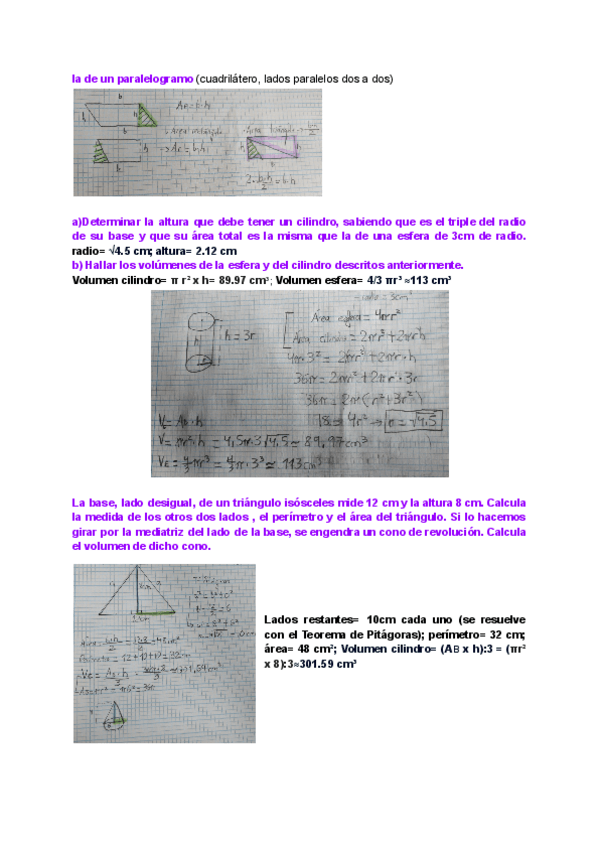 la de un paralelogramo (cuadrilátero, lados paralelos dos a dos)
b
h
h
b
A▫=b·h
h
a)Determinar la altura que debe tener un cilindro, sabiendo que es el triple del radio
de su base y que su área total es la misma que la de una esfera de 3cm de radio.
radio= √4.5 cm; altura= 2.12 cm
b) Hallar los volúmenes de la esfera y del cilindro descritos anteriormente.
Volumen cilindro= π r² x h= 89.97 cm³; Volumen esfera= 4/3 πr³ ≈113 cm³
Área esfera = 4πr²
h = 3r
h
Área cilindro = 2πr²+2πrh
4π·3² = 2πr²+2πr·h
36π = 2πr²+2πr·3r
36π = 2π(r²+3r²)
18 = 4r² → r=√4,5
V = AB·h
V= πr²·h = 4,5π·3√4,5 ≈ 89,97cm³
VE = 4/3πr³ = 4/3π·3³ ≈ 113cm³
La base, lado desigual, de un triángulo isósceles mide 12 cm y la altura 8 cm. Calcula
la medida de los otros dos lados , el perímetro y el área del triángulo. Si lo hacemos
girar por la mediatriz del lado de la base, se engendra un cono de revolución. Calcula
el volumen de dicho cono.
Lados restantes= 10cm cada uno (se resuelve
con el Teorema de Pitágoras); perímetro= 32 cm;
área= 48 cm²; Volumen cilindro= (AB x h):3 = (πr²
x 8):3≈301.59 cm³